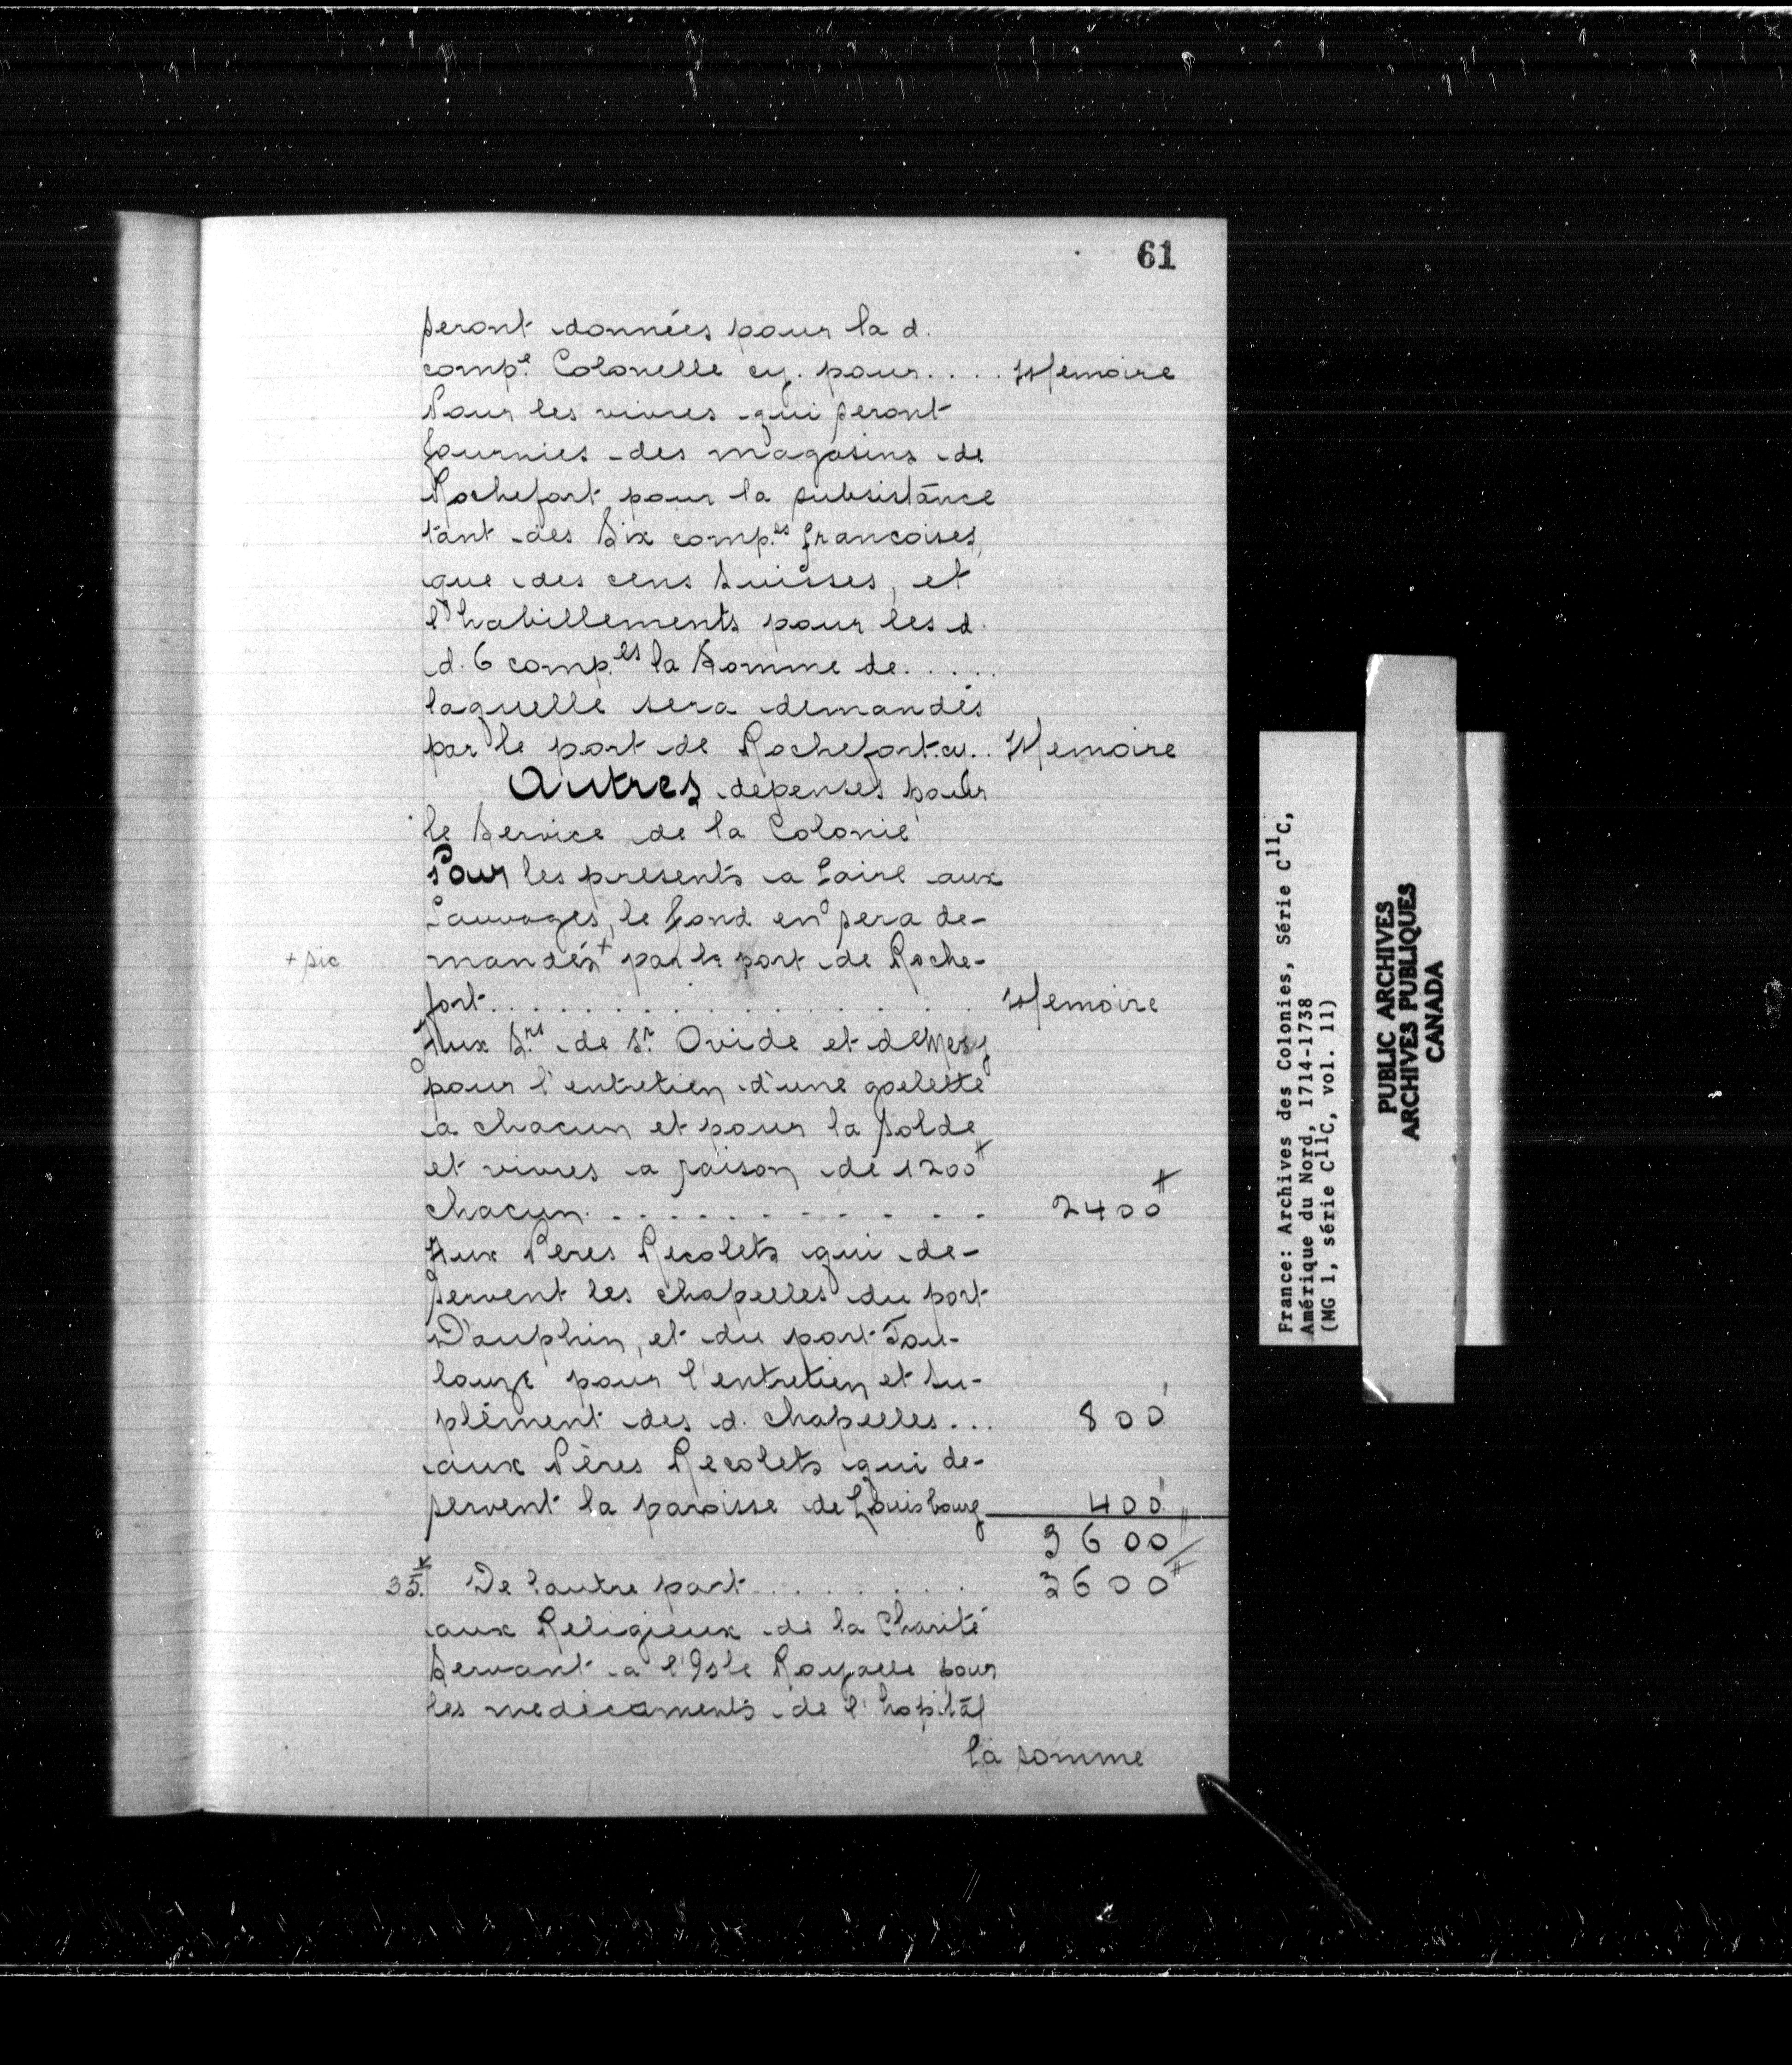 61
seront données pour la d.
comp.e Colonelle cy. pour.... Memoire
Pour les vivres qui seront
fournies des magasins de
Rochefort pour la subsistance
tant des Six comp.es francoises,
que des cens Suisses, et
l'habillements pour les d.
d. 6 comp.es la Somme de.....
laquelle sera demandés
par le port de Rochefort cy.. Memoire
Autres depenses pour
le Service de la Colonie
Pour les presents a faire aux
Sauvages, le fond en sera de-
+ sic mandés+ par le port de Roche-
fort.................. Memoire
Aux S.rs de S.t Ovide et de Mesy
pour l'entretien d'une goelette
a chacun et pour la solde
et vivres a raison de 1200#
chacun............ 2400#
Aux Peres Recolets qui de-
servent les chapelles du port
Dauphin, et du port Tou-
louze pour l'entretien et su-
plément des d. chapelles... 800
aux Pères Recolets qui de-
servent la paroisse de Louisbourg 400
3600#
35. De l'autre part......... 3600#
aux Religieux de la Charité
Servant a l'Isle Royalle pour
les medicaments de l'hopital
la somme
France: Archives des Colonies, Série C11C,
Amérique du Nord, 1714-1738
(MG 1, série C11C, vol. 11)
PUBLIC ARCHIVES
ARCHIVES PUBLIQUES
CANADA